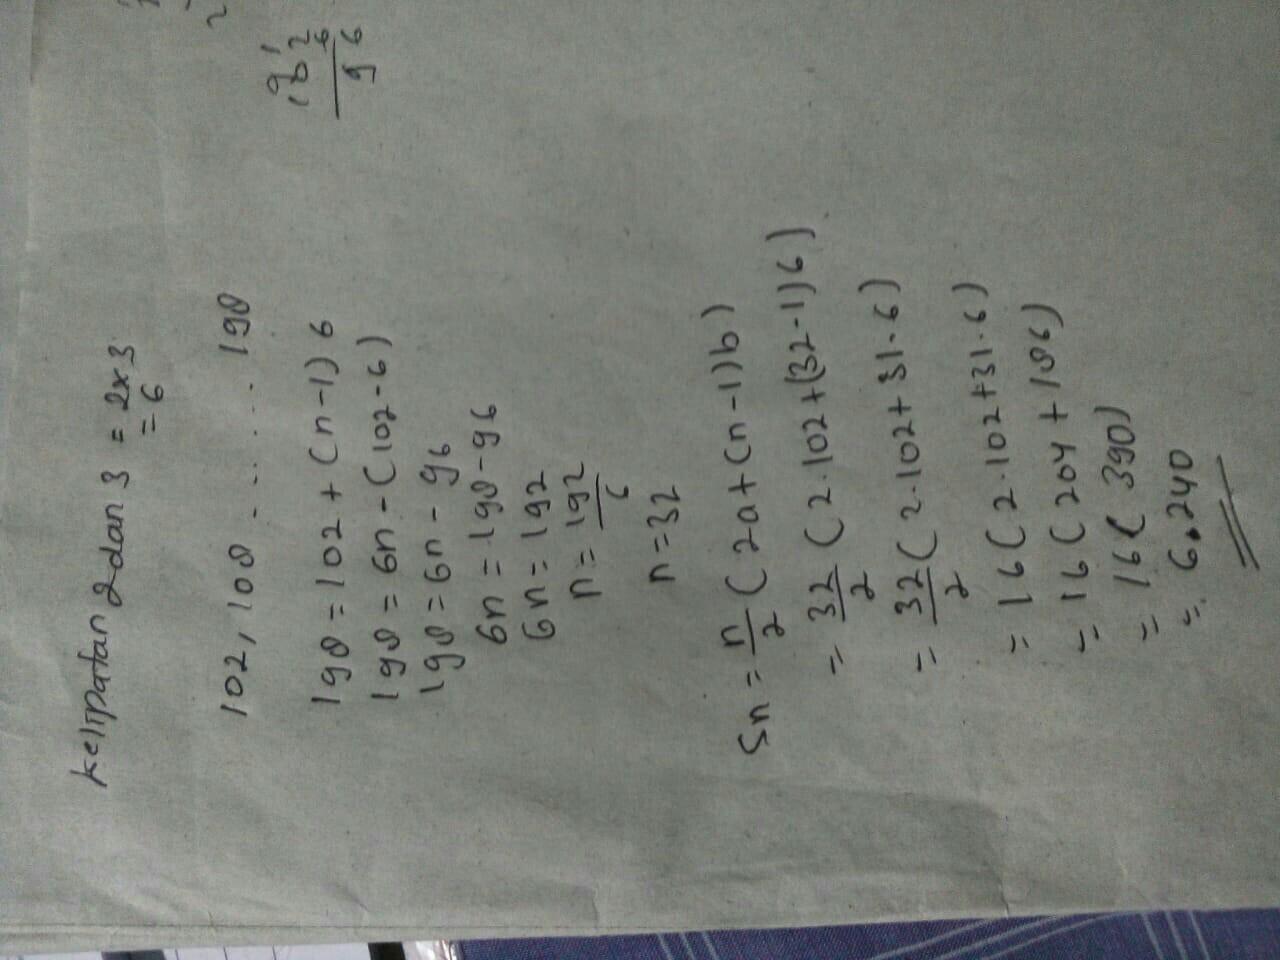 kelipatan 2 dan 3 = 2x3
= 6
102, 108 ........ 198
198 = 102 + (n-1) 6
198 = 6n - (102-6)
198 = 6n - 96
6n = 198-96
6n = 192
n = 192
6
n = 32
Sn = n/2 (2a + (n-1)b)
= 32/2 (2.102 + (32-1)6)
= 32/2 (2.102 + 31.6)
= 16 (2.102 + 31.6)
= 16 (204 + 186)
= 16 (390)
= 6.240